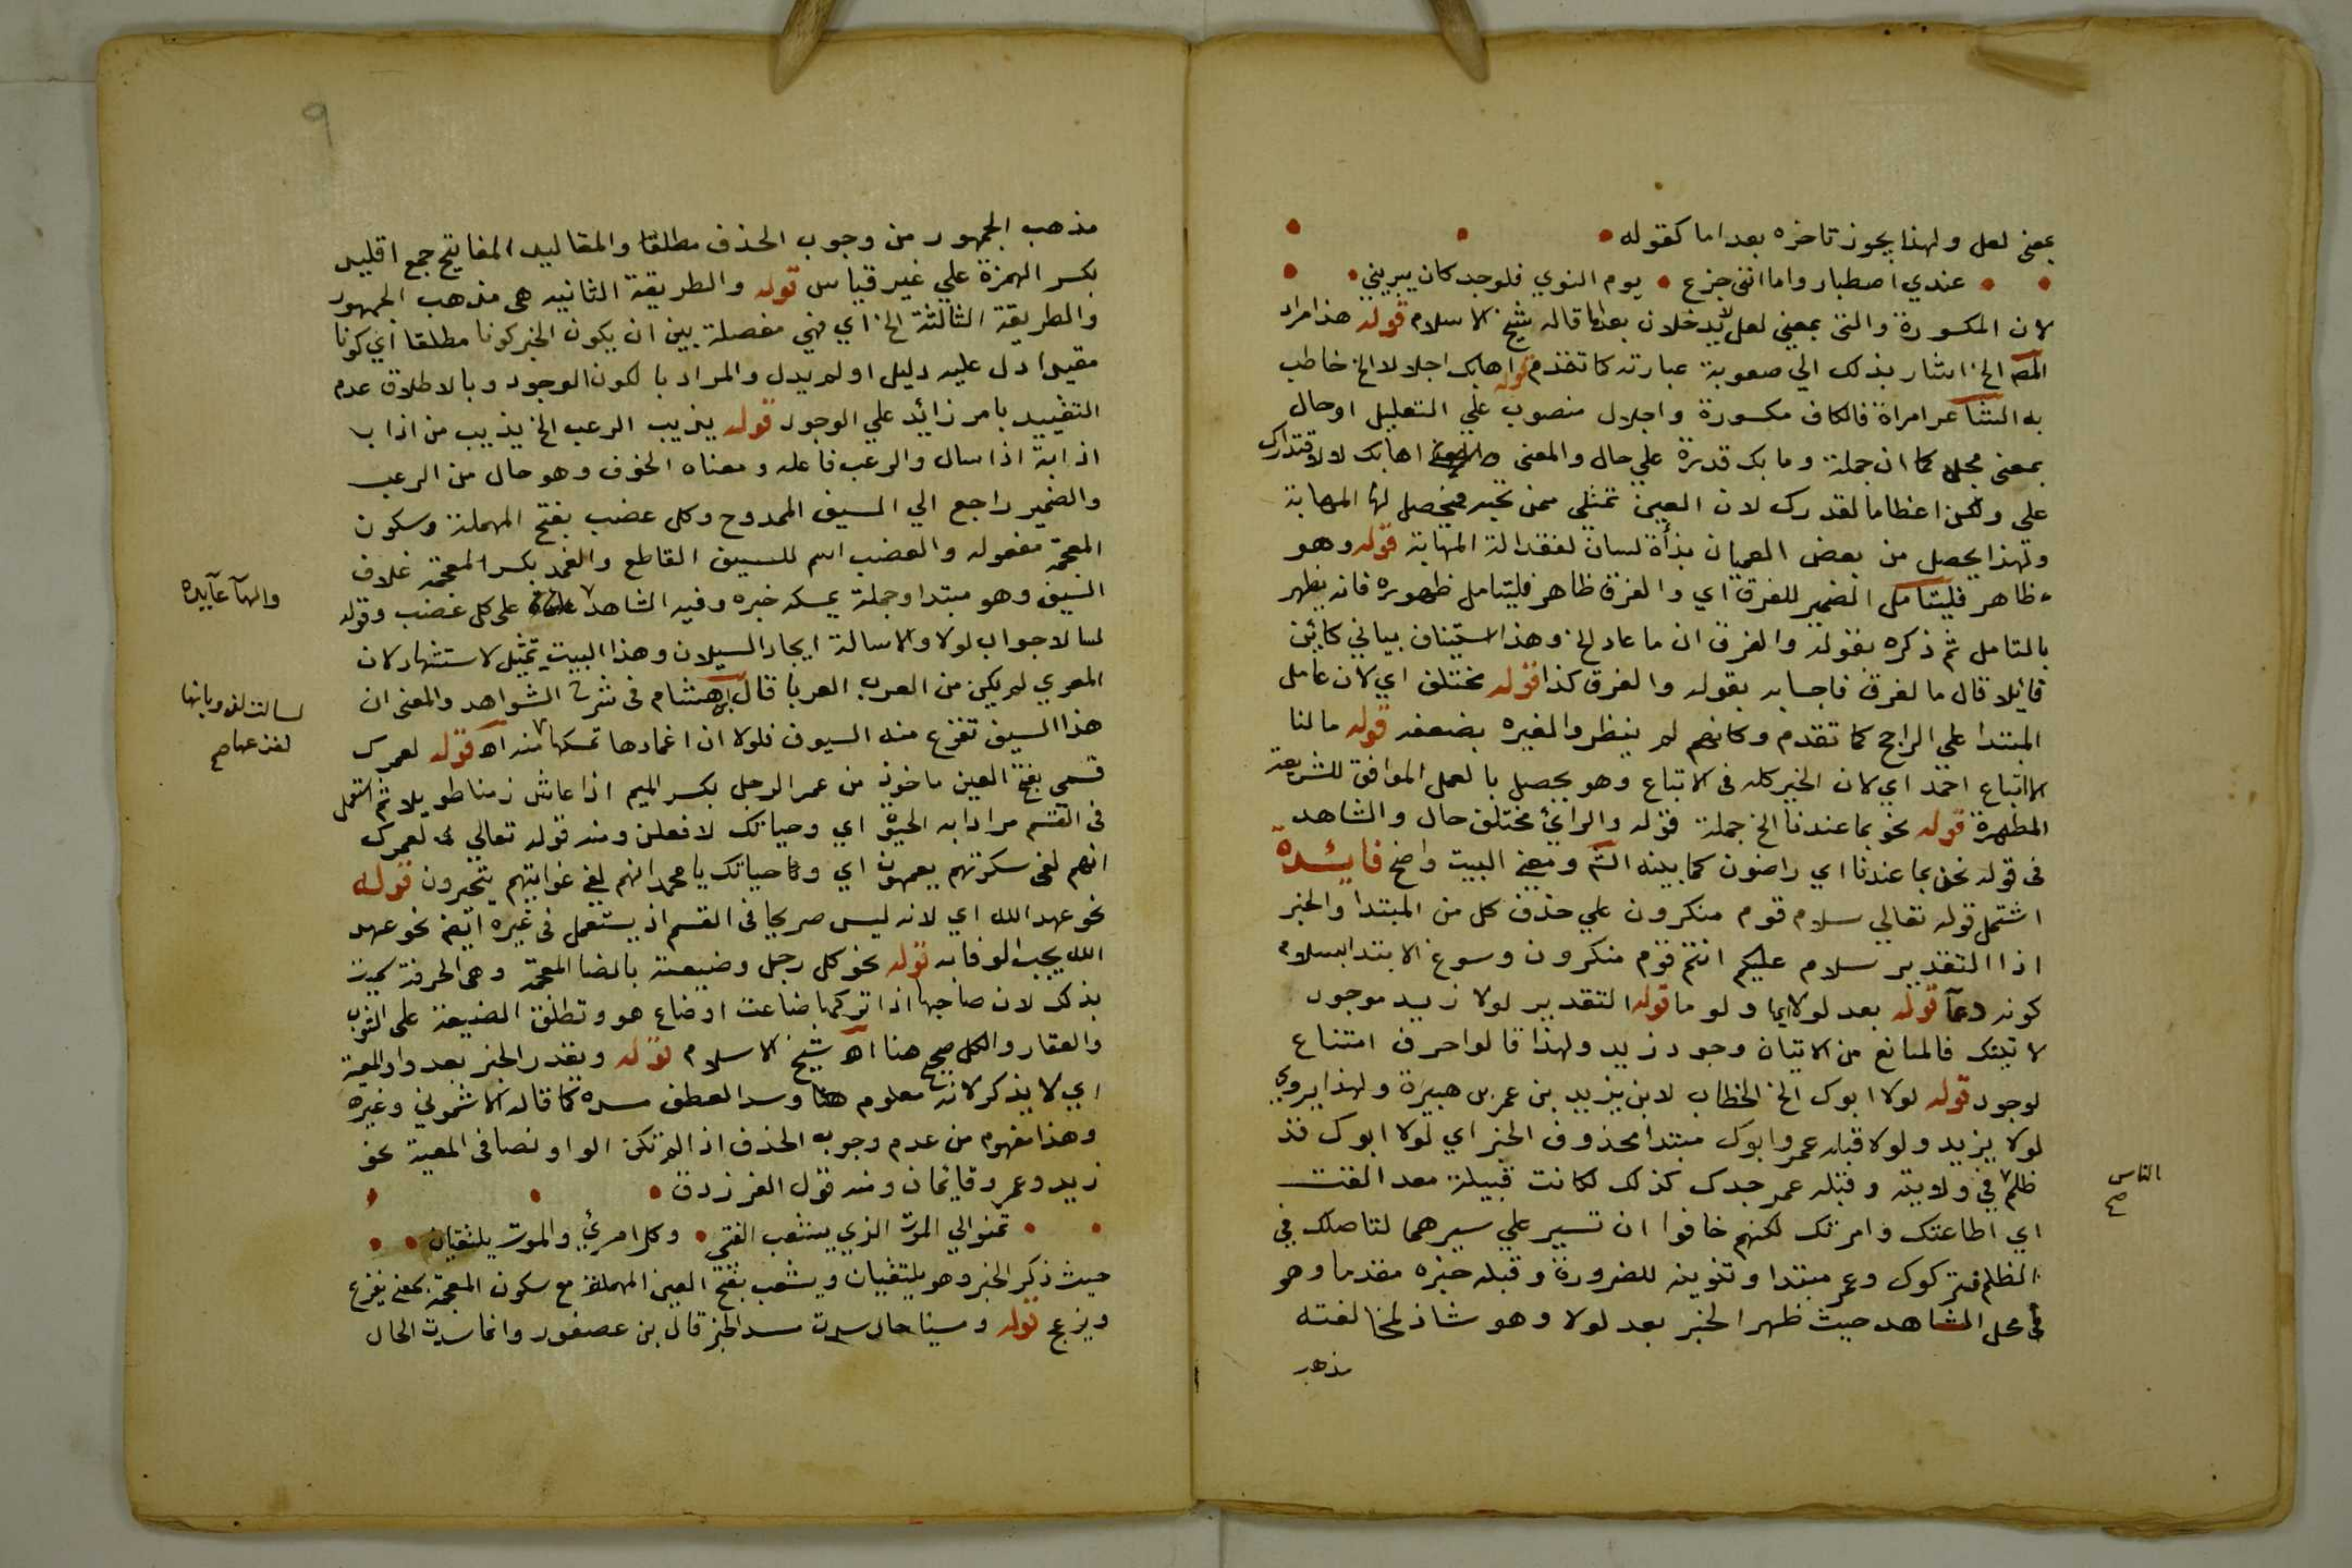 بمعنى لعل ولهذا يجوز تاخره بعد اما كقوله
عندي اصطبار واما انني جزع • يوم النوي فلوجد كان يبريني
لان المكسورة والتي بمعنى لعل لا يدخلان بعد اما قاله شيخ الاسلام قوله هذا مراد
المصه الخ اشار بذلك الي صعوبة عبارته كما تقدم قوله اهابك اجلالا الخ خاطب
به الشاعر امراة فالكاف مكسورة واجلال منصوب علي التعليل او حال
بمعنى مجلا كما ان جملة وما بك قدرة علي حال والمعنى اهابك لا لاقتدارك
علي ولكن اعظاما لقدرك لان العين تمتلي ممن تحبه فيحصل لها المهابة
ولهذا يحصل من بعض العميان بذأة لسان لفقد الة المهابة قوله وهو
ظاهر فليتامل الضمير للفرق اي والفرق ظاهر فليتامل ظهوره فانه يظهر
بالتامل ثم ذكره بقوله والفرق ان ما عاد الخ وهذا استيناف بياني كائن
قايلا قال ما الفرق فاجابه بقوله والفرق كذا قوله مختلف اي لان عامل
المبتدا علي الراجح كما تقدم وكانهم لم ينظروا لغيره بضعفه قوله مالنا
الا اتباع احمد اي لان الخير كله فى الاتباع وهو يحصل بالعمل الموافق للشريعة
المطهرة قوله نحو بما عندنا الخ جملة قوله والراي مختلف حال والشاهد
فى قوله نحن بما عندنا اي راضون كما بينه الشم ومعنى البيت واضح فايدة
اشتمل قوله تعالي سلام قوم منكرون علي حذف كل من المبتدا والخبر
اذ التقدير سلام عليكم انتم قوم منكرون وسوغ الابتدا بسلام
كونه دعآ قوله بعد لولا ولو ما قوله التقدير لولا زيد موجود
لاتيتك فالمانع من الاتيان وجود زيد ولهذا قالوا حرف امتناع
لوجود قوله لولا ابوك الخ الخطاب لابن يزيد بن عمر بن هبيرة ولهذا يروي
لولا يزيد ولولا قبله عمر وابوك مبتدا محذوف الخبر اي لولا ابوك قد
ظلم في ولايته وقبله عمر جدك كذلك لكانت قبيلة معد القت
اي اطاعتك وامرتك لكنهم خافوا ان تسير علي سيرهما لتاصلك في
الظلم فتركوك وعمر مبتدا وتنوينه للضرورة وقبله خبره مقدما وهو
فى محل الشاهد حيث ظهر الخبر بعد لولا وهو شاذ لمخالفته
مذهب
الناس
صح
٩
مذهب الجمهور من وجوب الحذف مطلقا والمقاليد المفاتيح جمع اقليد
بكسر الهمزة علي غير قياس قوله والطريقة الثانيه هى مذهب الجمهور
والطريقة الثالثة الخ اي فهي مفصلة بين ان يكون الخبر كونا مطلقا اي كونا
مقيدا دل عليه دليل او لم يدل والمراد بالكون الوجود وبالاطلاق عدم
التقييد بامر زائد علي الوجود قوله يذيب الرعب الخ يذيب من اذاب
اذابة اذا سال والرعب فاعله ومعناه الخوف وهو حال من الرعب
والضمير راجع الي السيف الممدوح وكل عضب بفتح المهملة وسكون
المعجمة مفعوله والعضب اسم للسيف القاطع والغمد بكسر المعجمة غلاف
السيف وهو مبتدا وجملة يمسكه خبره وفيه الشاهد على كل عضب وقوله
لسالا جواب لولا والاسالة ايجاد السيلان وهذا البيت تمثيل لا استشهاد لان
المعري لم يكن من العرب العربا قال ابن هشام فى شرح الشواهد والمعنى ان
هذا السيف تفزع منه السيوف فلولا ان اغمادها تمسكها منه اهـ قوله لعمرك
قسمي بفتح العين ماخوذ من عمر الرجل بكسر الميم اذا عاش زمنا طويلا ثم استعمل
فى القسم مرادا به الحيوة اي وحياتك لافعلن ومنه قوله تعالي لعمرك
انهم لفى سكرتهم يعمهون اي وحياتك يا محمد انهم لفي غوايتهم يتحيرون قوله
نحو عهد الله اي لانه ليس صريحا فى القسم اذ يستعمل فى غيره ايضا نحو عهد
الله يجب الوفا به قوله نحو كل رجل وضيعته بالضاد المعجمة وهى الحرفة سميت
بذلك لان صاحبها اذا تركها ضاعت او ضاع هو وتطلق الضيعة على الثوب
والعقار والكل صحيح هنا اهـ شيخ الاسلام قوله ويقدر الخبر بعد واو المعية
اي لا يذكر لانه معلوم وسد العطف مسده كما قاله الاشموني وغيره
وهذا مفهوم من عدم وجوب الحذف اذا لم تكن الواو نصا فى المعية نحو
زيد وعمر وقايمان ومنه قول الفرزدق
تمنوا لي الموت الذي يشعب الفتى • وكل امرئ والموت يلتقيان
حيث ذكر الخبر وهو يلتقيان ويشعب بفتح العين المهملة مع سكون المعجمة بمعنى يفزع
ويزعج قوله ومسينا حال سدت مسد الخبر قال بن عصفور وانما سدت الحال
والهآ عآيدة
لسالت لذوبانها
لفزعها صح